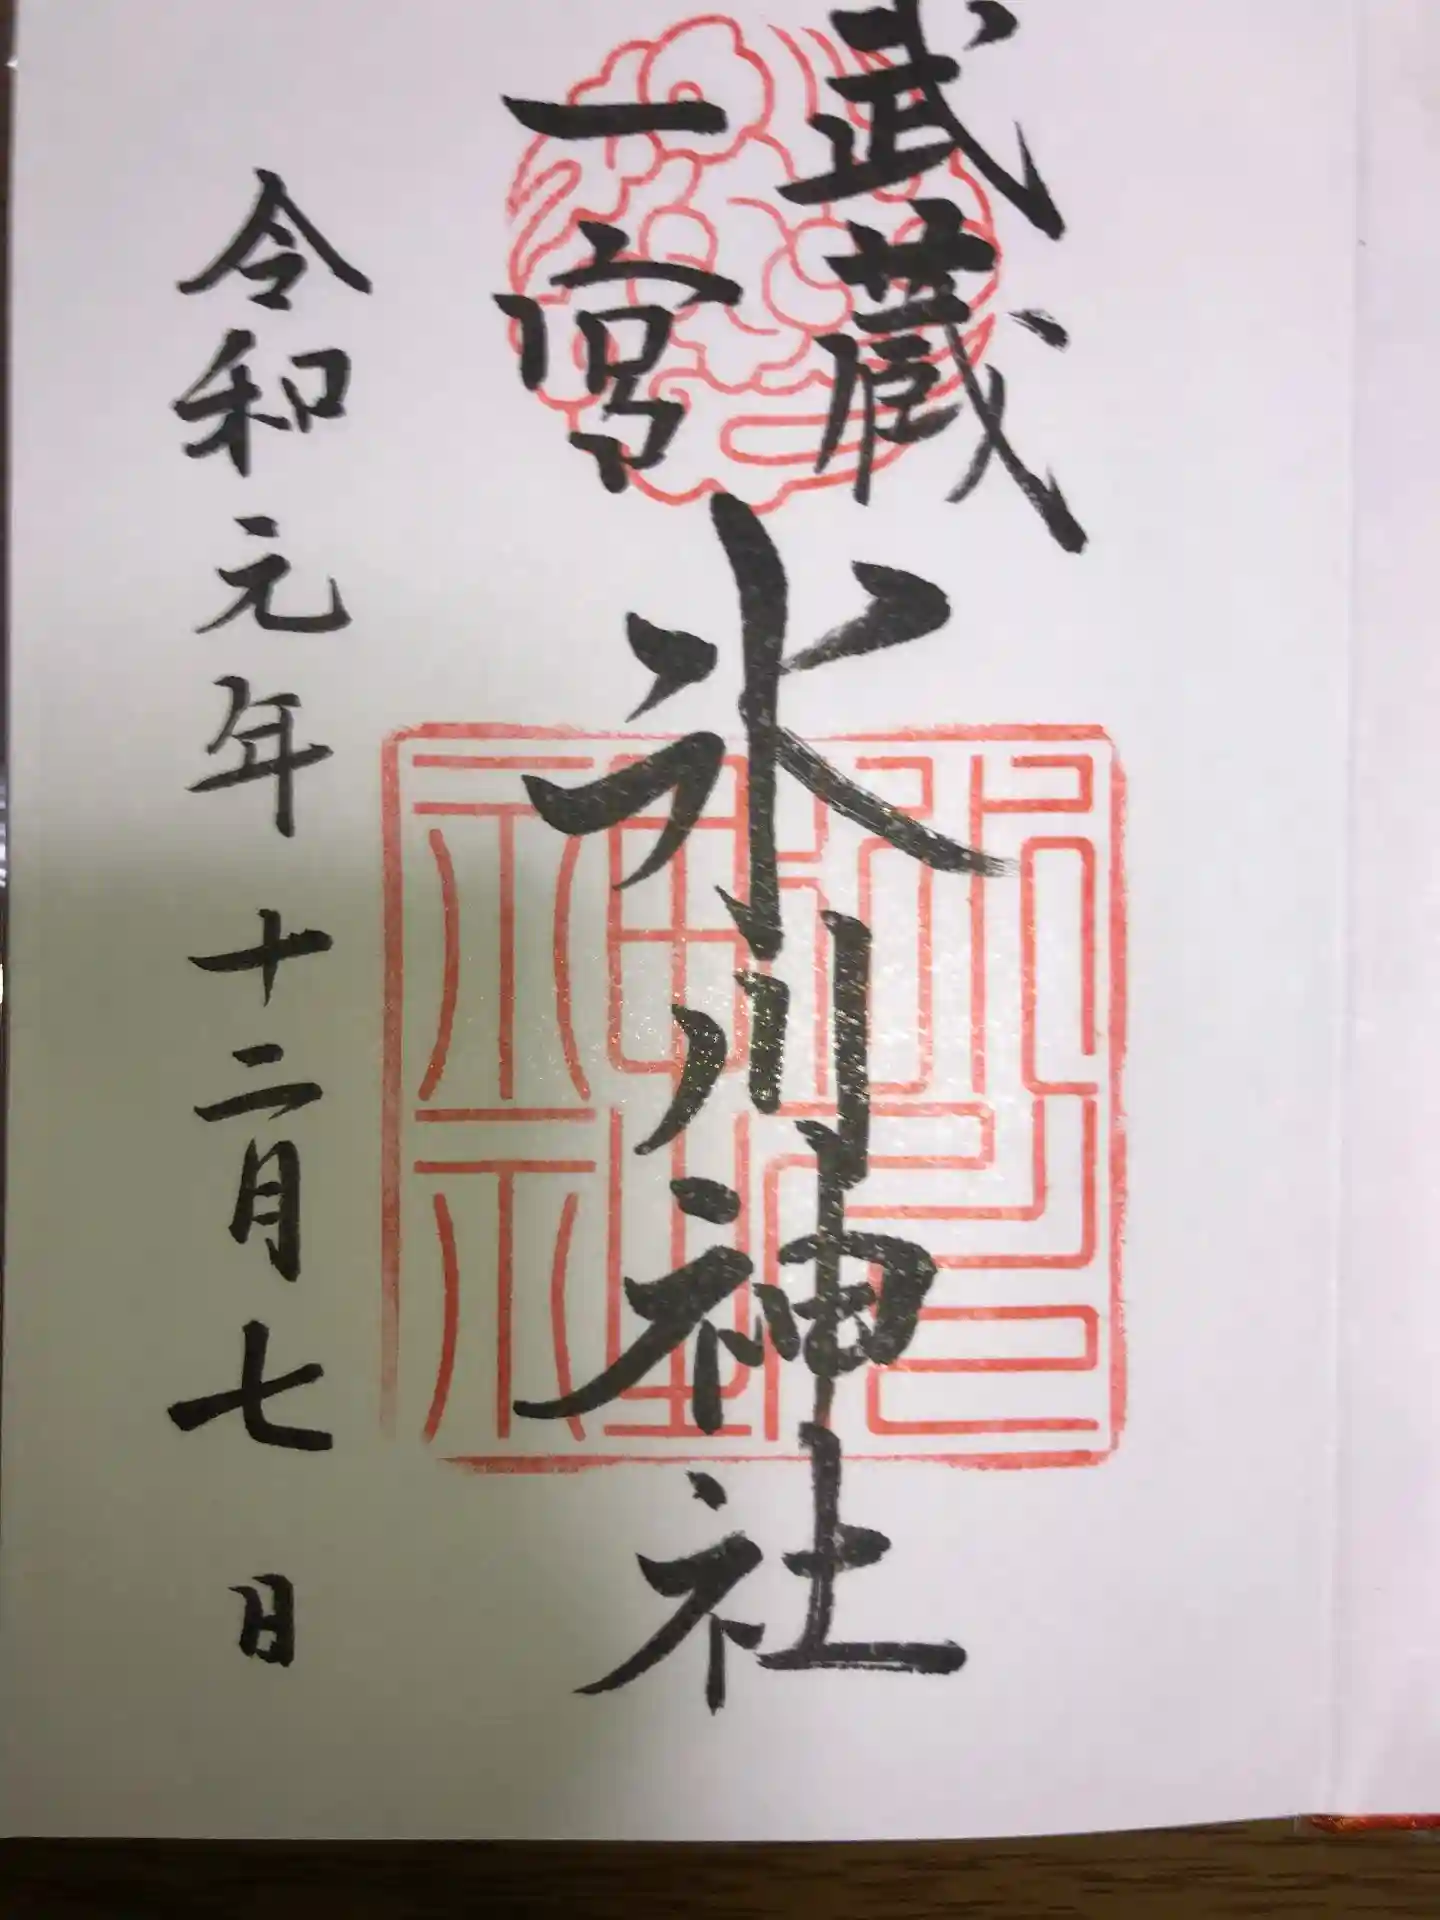 武蔵
一宮
氷川神社
令和元年十二月七日
氷川神社